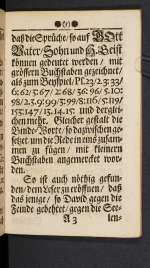 (7)
daß die Sprüche / so auf GOtt
Vater / Sohn und H. Geist
können gedeutet werden / mit
grössern Buchstaben gezeichnet /
als zum Beyspiel / Pſ. 2
und derglei-
chen mehr. Gleicher gestalt die
Binde-Worte / so dazwischen ge-
setzet um die Rede in eins zusam-
men zu fügen / mit kleinern
Buchstaben angemercket wor-
den.
So ist auch nöthig gefun-
den / dem Leser zu eröffnen / daß
das jenige / so David gegen die
Feinde gebehtet / gegen die See-
A 3 len-